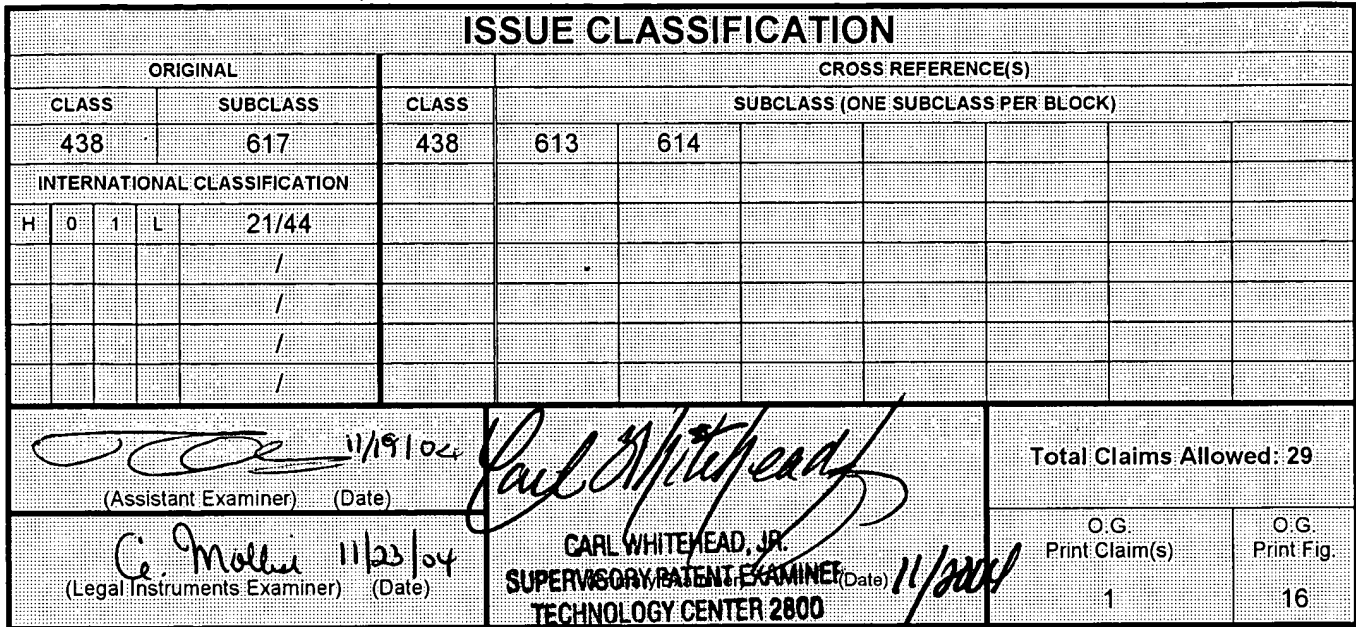 ISSUE CLASSIFICATION
ORIGINAL CROSS REFERENCE(S)
CLASS SUBCLASS CLASS SUBCLASS (ONE SUBCLASS PER BLOCK)
438 617 438 613 614
INTERNATIONAL CLASSIFICATION
H 0 1 L 21/44
/
/
/
/
11/19/04
(Assistant Examiner) (Date)
C. Mollie 11/23/04
(Legal Instruments Examiner) (Date)
Carl Whitehead
CARL WHITEHEAD, JR.
SUPERVISORY PATENT EXAMINER (Date) 11/2004
TECHNOLOGY CENTER 2800
Total Claims Allowed: 29
O.G. Print Claim(s)
1
O.G. Print Fig.
16